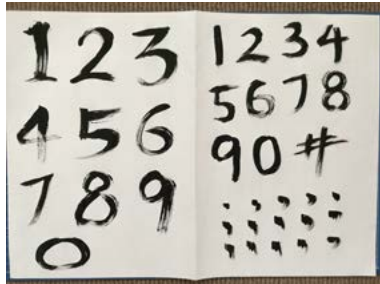 1 2 3
4 5 6
7 8 9
0
1 2 3 4
5 6 7 8
9 0 #
, , , , ,
, , , , ,
, , , , ,